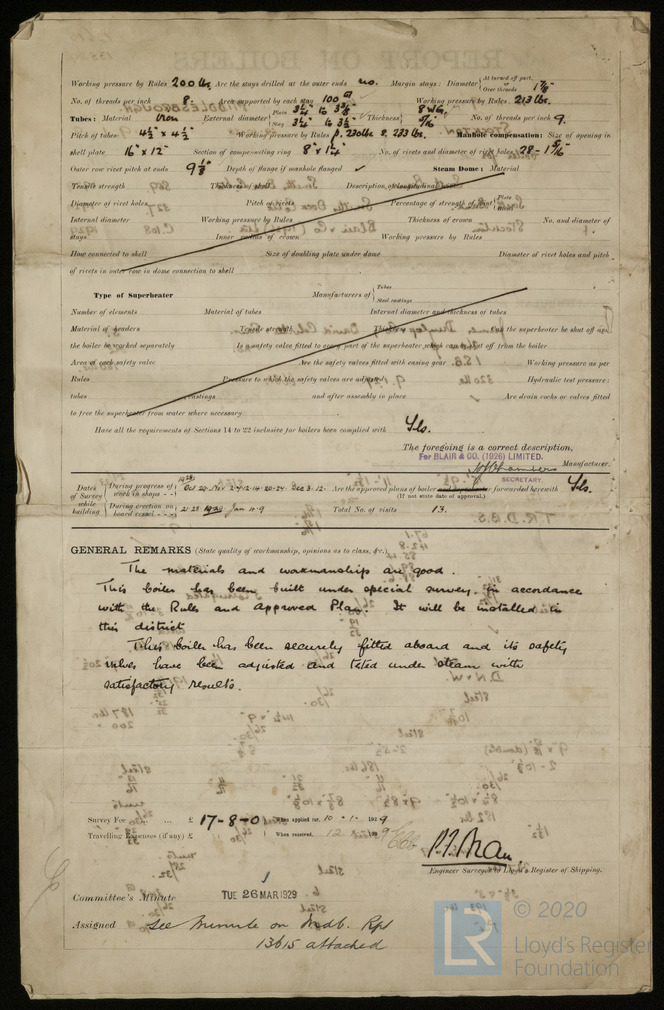 Working pressure by Rules 200 lbs. Are the stays drilled at the outer ends no. Margin stays: Diameter { At turned off part, or Over threads 1 7/8"
No. of threads per inch 8. Area supported by each stay 100 Working pressure by Rules 213 lbs.
Tubes: Material Iron External diameter { Plain 3 1/4" Stay 3 1/4" Thickness { 8 WG. 5/16" No. of threads per inch 9.
Pitch of tubes 4 1/2" x 4 1/2" Working pressure by Rules p. 230 lbs s. 233 lbs. Manhole compensation: Size of opening in
shell plate 16" x 12" Section of compensating ring 8" x 1 1/4" No. of rivets and diameter of rivet holes 28 - 1 5/16"
Outer row rivet pitch at ends 9 1/8" Depth of flange if manhole flanged ✓ Steam Dome: Material
Tensile strength Thickness of shell Description of longitudinal
Diameter of rivet holes Pitch of rivets Percentage of strength of joint { Plate Rivets
Internal diameter Working pressure by Rules Thickness of crown No. and diameter of
stays Inner radius of crown Working pressure by Rules
How connected to shell Size of doubling plate under dome Diameter of rivet holes and pitch
of rivets in outer row in dome connection to shell
Type of Superheater Manufacturers of { Tubes Steel castings
Number of elements Material of tubes Internal diameter and thickness of tubes
Material of headers Tensile strength Thickness Can the superheater be shut off and
the boiler be worked separately Is a safety valve fitted to every part of the superheater which can be shut off from the boiler
Area of each safety valve Are the safety valves fitted with easing gear Working pressure as per
Rules Pressure to which the safety valves are adjusted Hydraulic test pressure:
tubes castings and after assembly in place Are drain cocks or valves fitted
to free the superheater from water where necessary
Have all the requirements of Sections 14 to 22 inclusive for boilers been complied with Yes.
The foregoing is a correct description,
For BLAIR & CO. (1926) LIMITED.
Manufacturer.
SECRETARY.
Dates of Survey while building { During progress of work in shops - - 1928 Oct 22 Nov 2.7.12.14.20.24. Dec 3.12. Are the approved plans of boiler forwarded herewith Yes.
(If not state date of approval.)
During erection on board vessel - - - 21.28 1929 Jan 4.9 Total No. of visits 13.
GENERAL REMARKS (State quality of workmanship, opinions as to class, &c.)
The materials and workmanship are good.
This boiler has been built under special survey in accordance
with the Rules and Approved Plan. It will be installed in
this district
This boiler has been securely fitted aboard and its safety
valves have been adjusted and tested under steam with
satisfactory results.
Survey Fee ... ... £ 17-8-0 When applied for, 10 - 1 - 1929
Travelling Expenses (if any) £ When received, 12
Engineer Surveyor to Lloyd's Register of Shipping.
Committee's Minute TUE 26 MAR 1929
Assigned See Minute on Mdb. Rpt
13615 attached
LR © 2020
Lloyd's Register
Foundation